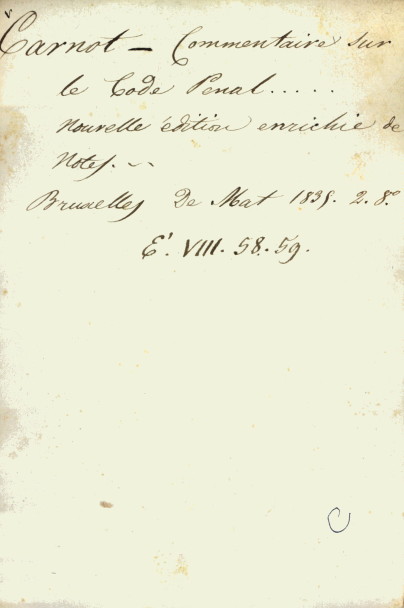 Carnot – Commentaire sur
le Code Penal.....
Nouvelle édition enrichie de
Notes.
Bruxelles De Mat 1835. 2. 8º
E'. VIII. 58. 59.
C